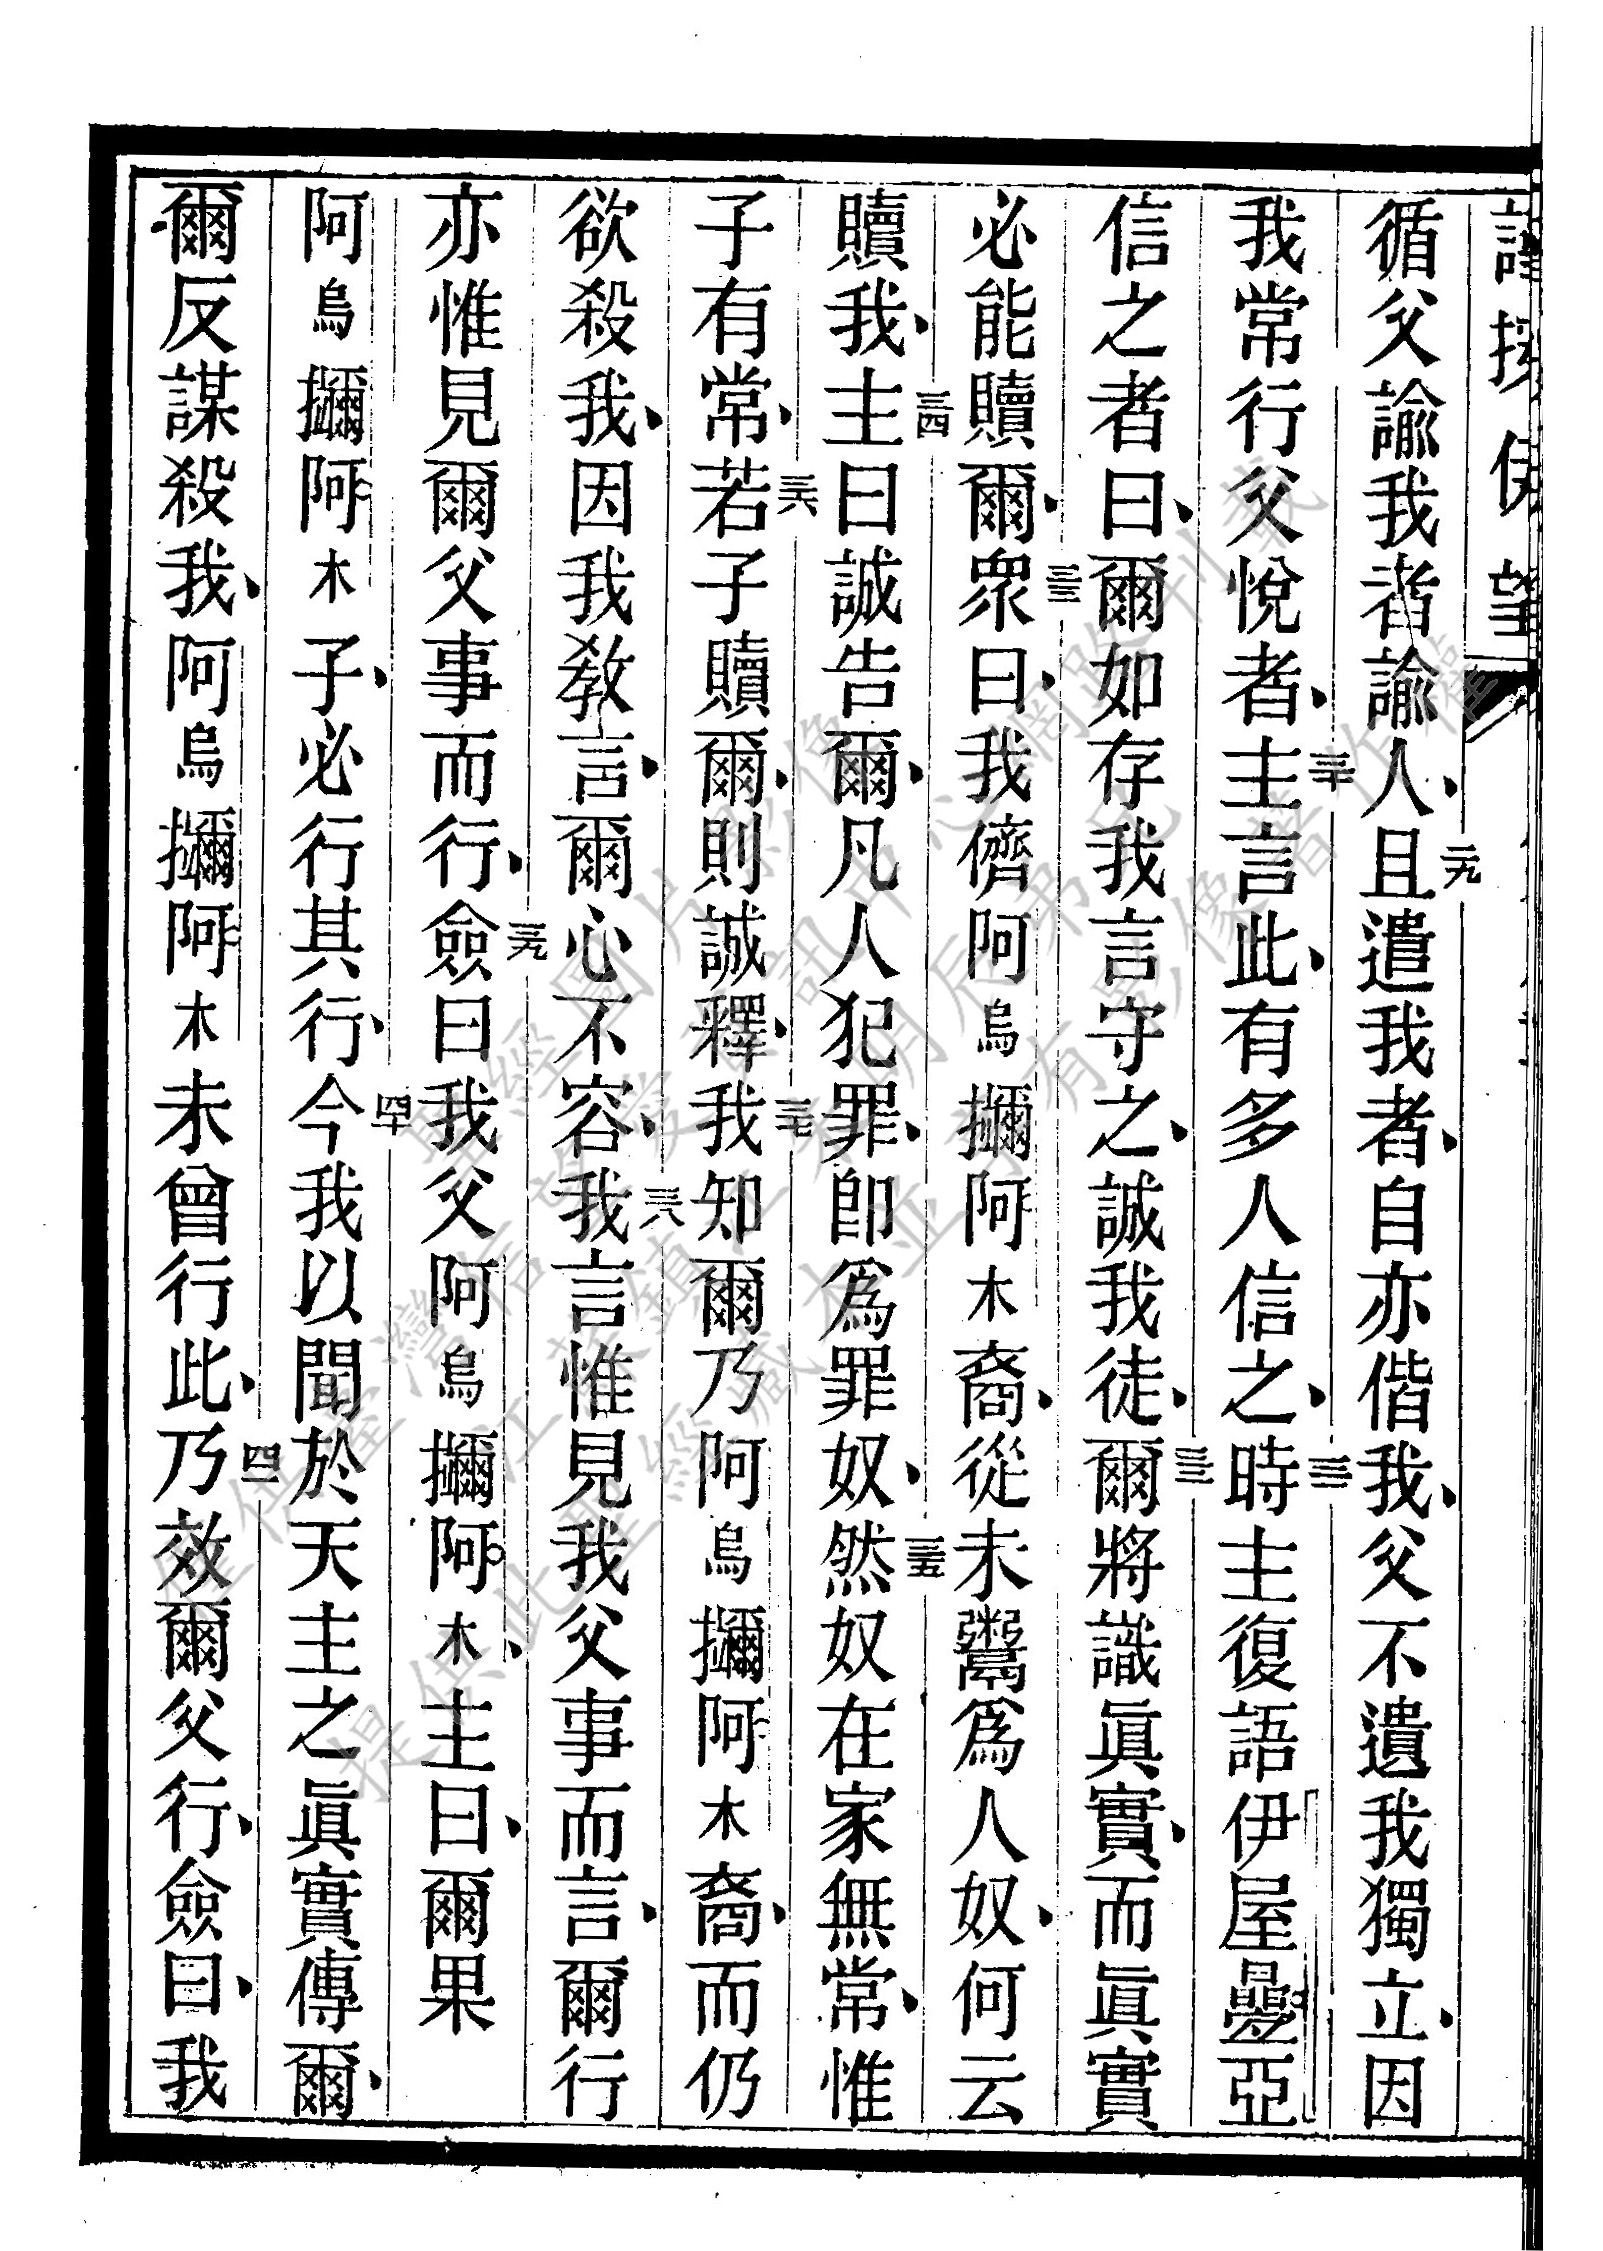 循父諭我者諭人、二九且遣我者、自亦偕我、父不遺我獨立、因
我常行父悅者、三十主言此、有多人信之、三一時主復語伊屋疊亞
信之者曰、爾如存我言守之、誠我徒、三二爾將識眞實、而眞實
必能贖爾、三三眾曰、我儕阿烏擟阿木裔、從未鬻爲人奴、何云
贖我、三四主曰誠告爾、凡人犯罪、卽爲罪奴、三五然奴在家無常、惟
子有常、三六若子贖爾、則誠釋、三七我知爾乃阿烏擟阿木裔、而仍
欲殺我、因我教言、爾心不容、三八我言惟見我父事而言、爾行
亦惟見爾父事而行、三九僉曰我父阿烏擟阿木、主曰、爾果
阿烏擟阿木子、必行其行、四十今我以聞於天主之眞實傳爾、
爾反謀殺我、阿烏擟阿木未曾行此、四一乃效爾父行、僉曰、我